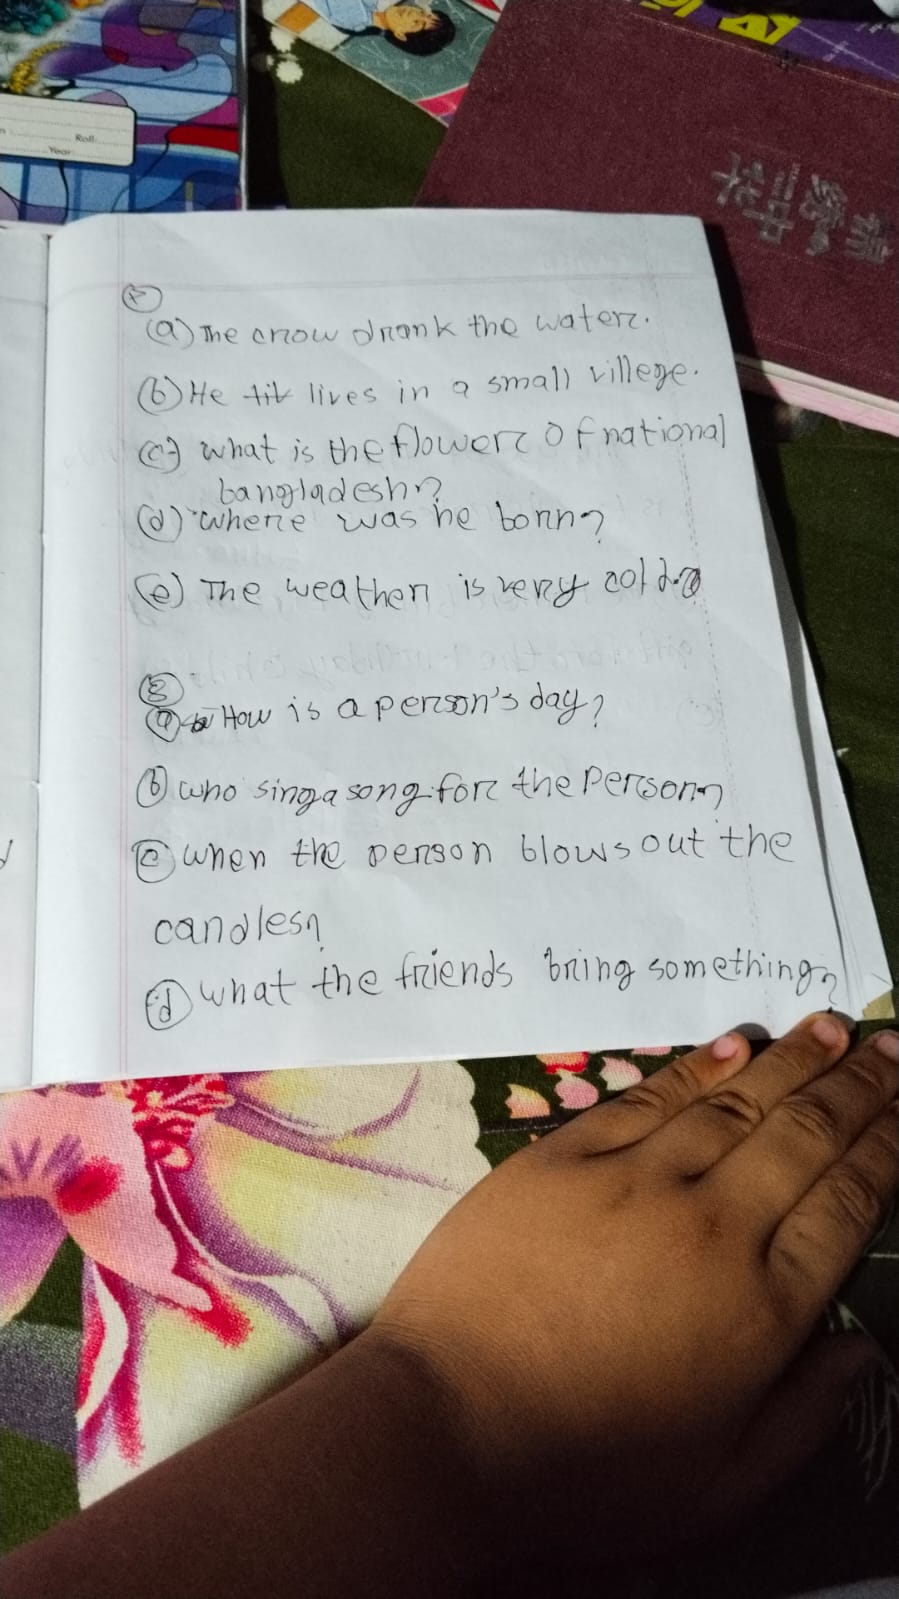 Roll:
Year:
(a) The crow drank the water.
(b) He lives in a small villege.
(c) what is the flower of national
bangladesh?
(d) where was he born?
(e) The weather is very cold.
(8)
(a) How is a person's day?
(b) who sing a song for the person?
(c) when the person blows out the
candles?
(d) what the friends bring something?